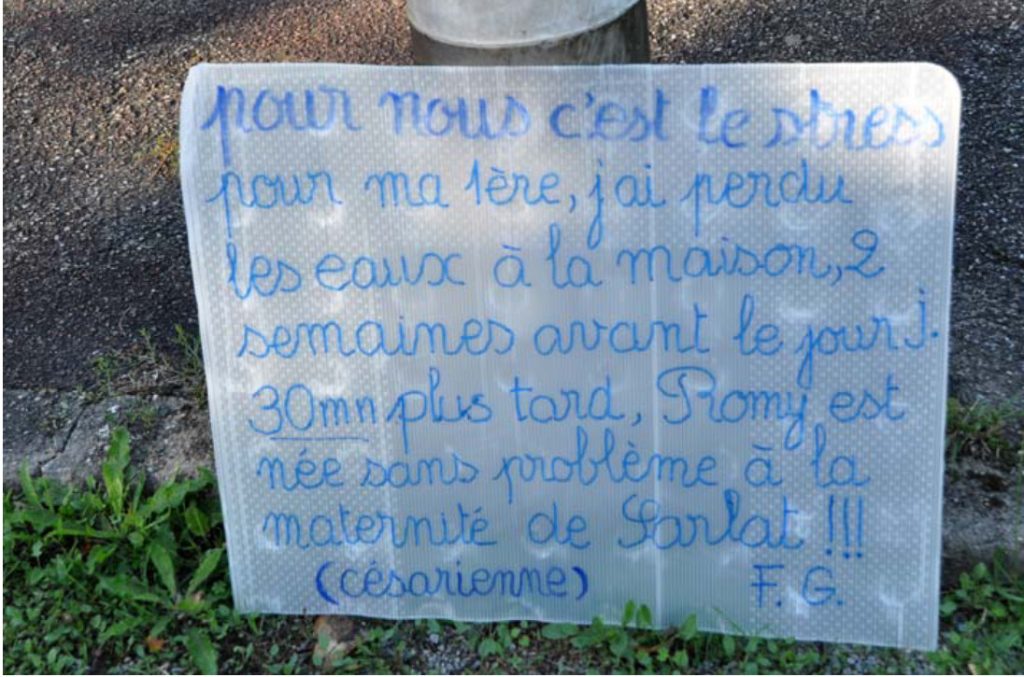 pour nous c'est le stress
pour ma 1ère, j'ai perdu
les eaux à la maison, 2
semaines avant le jour J.
30mn plus tard, Romy est
née sans problème à la
maternité de Sarlat !!!
(césarienne) F. G.